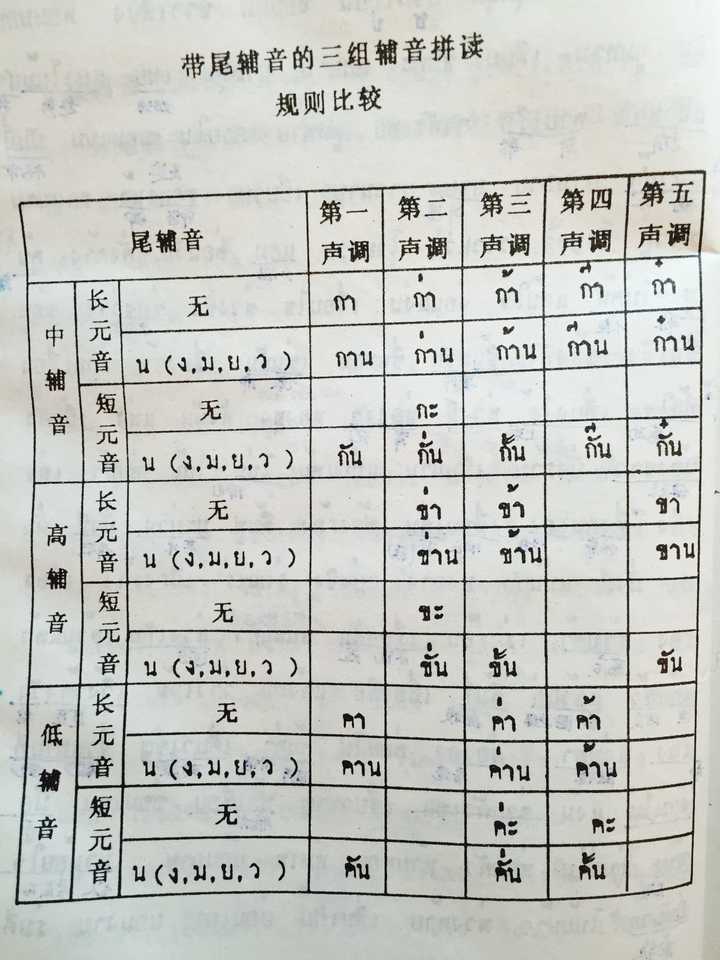 带尾辅音的三组辅音拼读
规则比较
尾辅音 第一声调 第二声调 第三声调 第四声调 第五声调
中辅音 长元音 无 กา ก่า ก้า ก๊า ก๋า
น (ง,ม,ย,ว) กาน ก่าน ก้าน ก๊าน ก๋าน
短元音 无 กะ
น (ง,ม,ย,ว) กัน กั่น กั้น กั๊น กั๋น
高辅音 长元音 无 ข่า ข้า ขา
น (ง,ม,ย,ว) ข่าน ข้าน ขาน
短元音 无 ขะ
น (ง,ม,ย,ว) ขั่น ขั้น ขัน
低辅音 长元音 无 คา ค่า ค้า
น (ง,ม,ย,ว) คาน ค่าน ค้าน
短元音 无 ค่ะ คะ
น (ง,ม,ย,ว) คัน คั่น คั้น